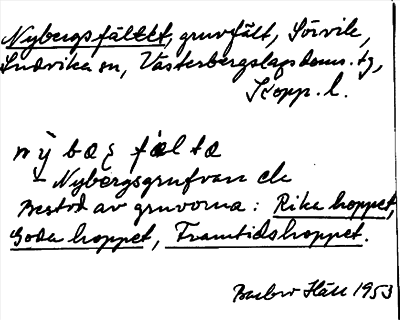 Nybergsfältet, gruvfält, Sörvik,
Ludvika sn, Västerbergslags doms. tg,
Kopp. l.
– Nybergsgrufvan
Bestod av gruvorna: Rika hoppet,
Goda hoppet, Framtidshoppet.
1953